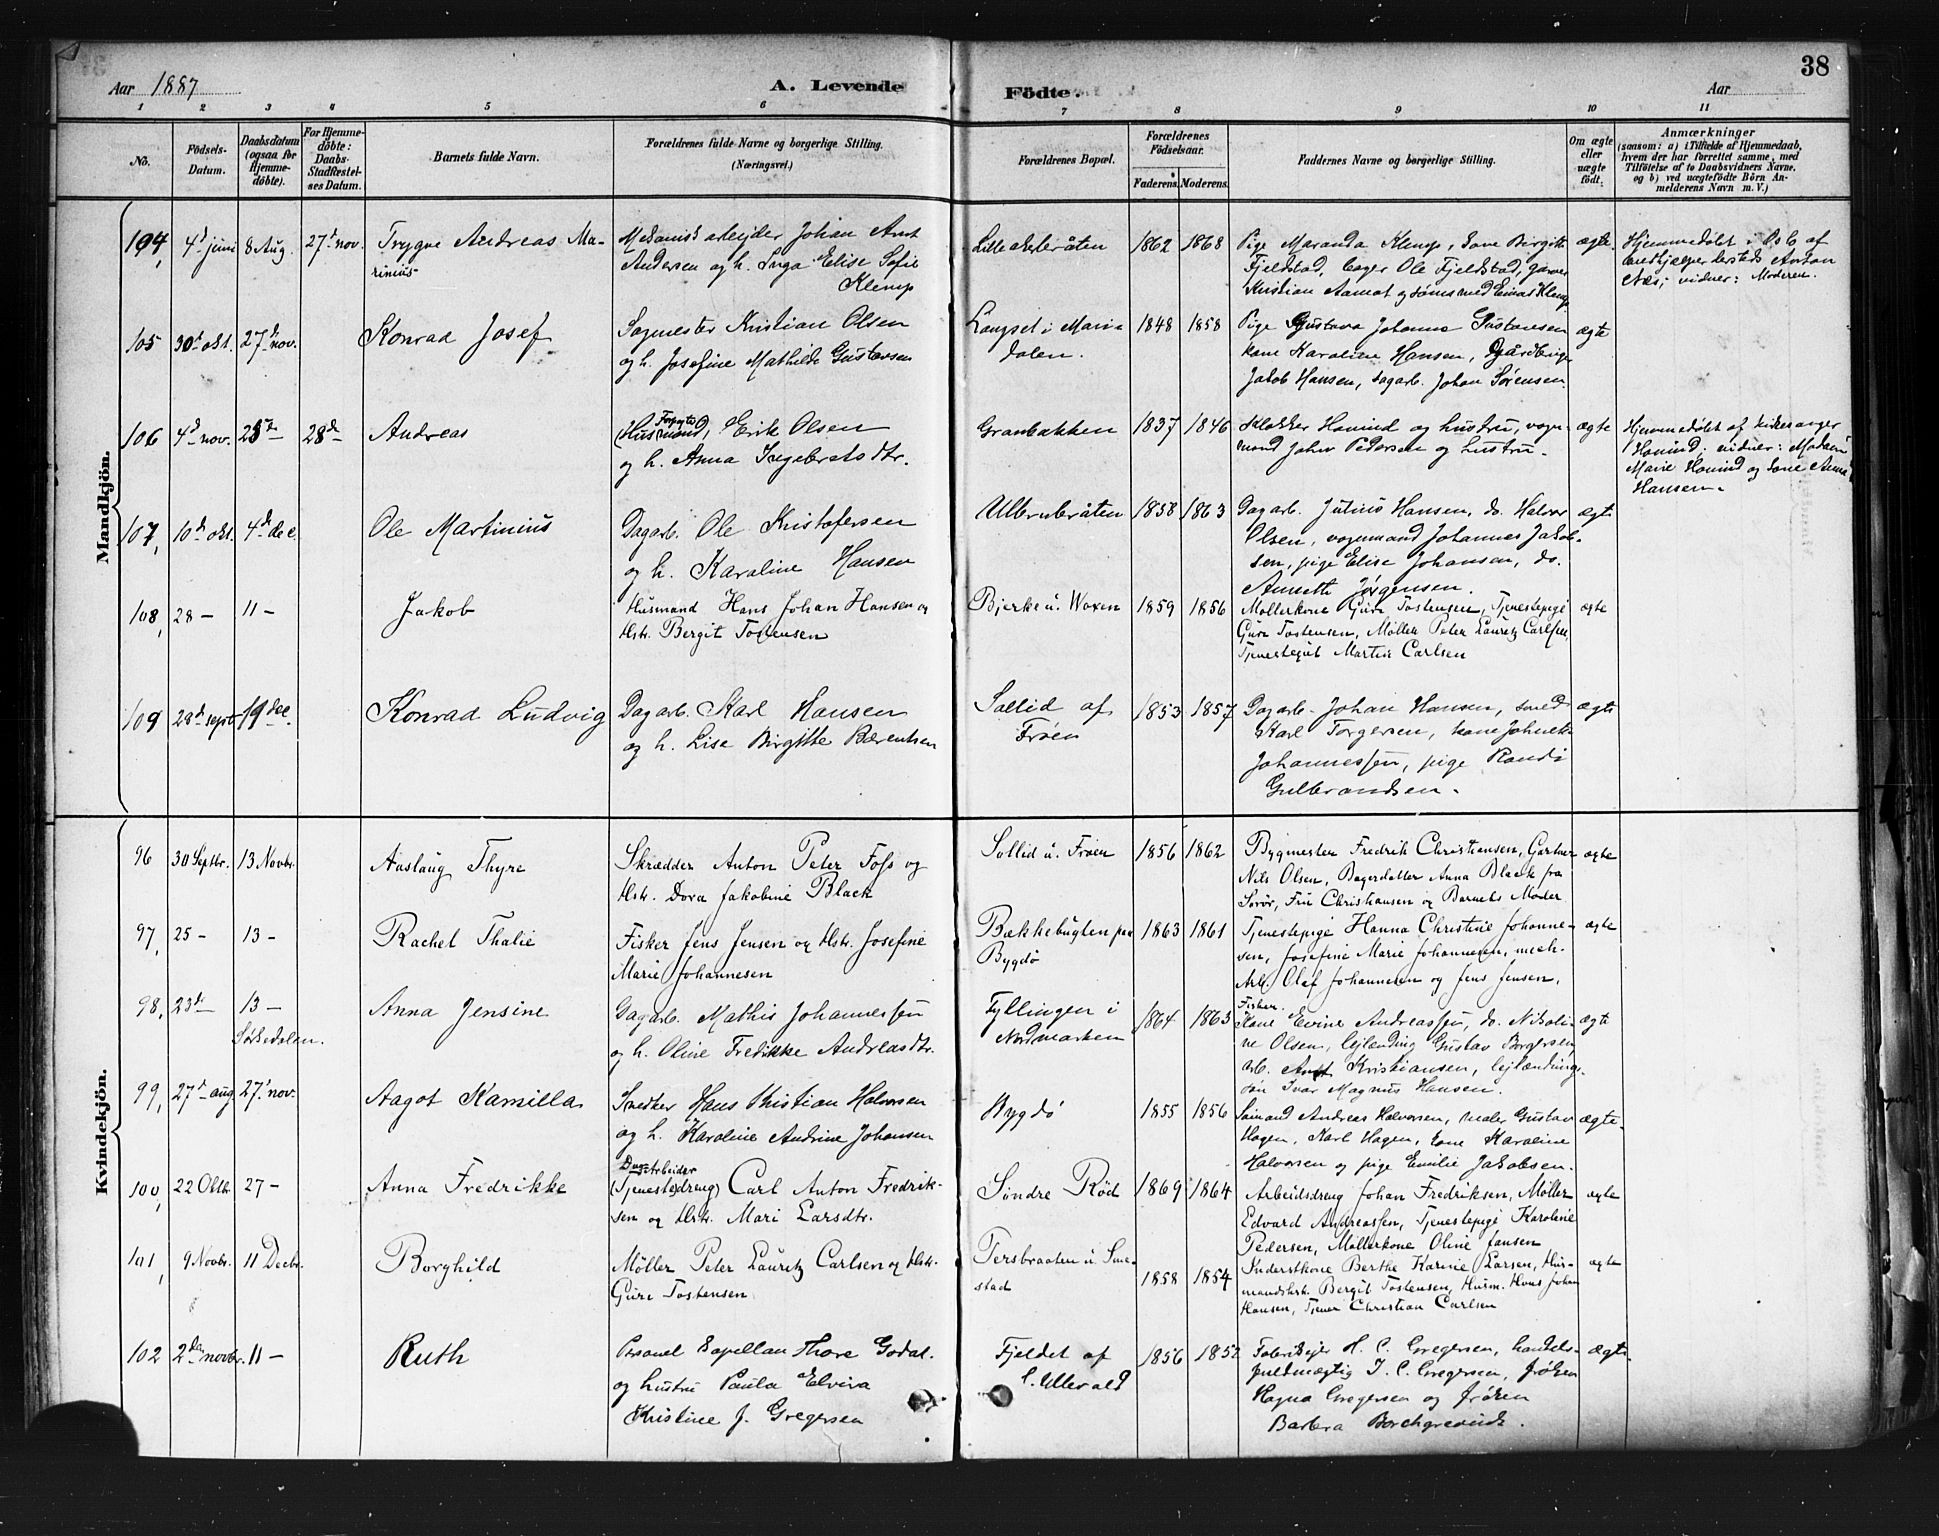 38
Aar 1887
A. Levende
Födte.
Aar
1 2 3 4 5 6 7 8 9 10 11
No.
Födsels-
Datum.
Daabsdatum
(ogsaa for
Hjemme-
döbte).
For Hjemme-
döbte:
Daabs-
Stadfæstel-
ses Datum.
Barnets fulde Navn.
Forældrenes fulde Navne og borgerlige Stilling.
(Næringsvei.)
Forældrenes Bopæl.
Forældrenes
Födselsaar.
Faderens. Moderens.
Faddernes Navne og borgerlige Stilling.
Om ægte
eller
uægte
født.
Anmærkninger
(saasom: a) i Tilfælde af Hjemmedaab,
hvem der har forrettet samme, med
Tilföielse af to Daabsvidners Navne,
og b) ved uægtefödte Börn An-
melderens Navn m. V.)
Mandkjön.
104, 4d juni 8 Aug. 27d nov. Trygve Andreas Ma-
rinius
Mekanisk arbejder Johan Arnt
Andersen og h. Inga Elise Sofie
Klemp
Lille akleråten 1862 1868
Pige Maranda Klemp, kone Birgitte
Fjeldstad, bager Ole Fjeldstad, garver
Kristian Aamot og Einar Klemp
ægte.
Hjemmedøbt i Oslo af
Anton
Næs; vidner: Moderen.
105 30d okt. 27de nov. Konrad Josef
Sagmester Kristian Olsen
og h. Josefine Mathilde Gustavsen
Langset i Mari-
dalen. 1848 1858
Pige Gustava Johanne Gustavsen
kone Karoline Hansen, Gårdbruger
Jakob Hansen, sagarb. Johan Sørensen.
ægte
106 4d nov. 28de 28de Andreas
(Husmand) Erik Olsen
og h. Anna Ingebretsdtr.
Granbakken 1837 1846
Klokker Hovind og hustru, vogn-
mand John Pedersen og hustru.
ægte
Hjemmedøbt af kirkesanger
Hovind; vidner:
Marie Hovind og kone Anna
Hansen.
107, 10de okt. 4de dec. Ole Martinius
Dagarb. Ole Kristofersen
og h. Karoline Hansen
Ullernbråten 1858 1863
Dagarb. Julius Hansen, do. Halvor
Olsen, vognmand Johannes Jakob-
sen, pige Elise Johansen, do.
Annette Jørgensen.
ægte
108, 28 - 11 - Jakob
Husmand Hans Johan Hansen og
Hstr. Bergit Tostensen
Bjerke u. Voxen 1859 1856
Møllerkone Guri Tostensen, Tjenestepige
Guri Tostensen, Møller Peter Lauretz Carlsen,
Tjenestegut Martin Carlsen
ægte
109 28d sept. 19 dec. Konrad Ludvig
Dagarb. Karl Hansen
og h. Lise Birgitte Bærentsen
Sollid af
Frøen 1853 1857
Dagarb. Johan Hansen, smed
Karl Torgersen, kone
Johannessen, pige Randi
Gulbrandsen.
ægte
Kvindekjön.
96 30 Septbr. 13 Novbr. Aaslaug Thyre
Skrædder Anton Peter Foss og
Hstr. Dora Jakobine Black
Sollid u. Frøen 1856 1862
Bygmester Fredrik Christiansen, Gartner
Nils Olsen, Bagerdatter Anna Black fra
Sorør, Fru Christiansen og Barnets Moder
ægte
97, 25 - 13 - Rachel Thalie
Fisker Jens Jensen og Hstr. Josefine
Marie Johannesen
Bækkebugten paa
Bygdø 1863 1861
Tjenestepige Hanna Christine Johanne-
sen, Josefine Marie Johannesen, mech.
Arb. Olaf Johannesen og Jens Jensen.
ægte
98, 23de 13 - Anna Jensine
Sørkedalen.
Dagarb. Mathis Johannessen
og h. Oline Fredrikke Andreasdtr.
Fyllingen i
Nordmarken 1864 1863
Fisker
Kone Evine Andreassen, do. Nikoli-
ne Olsen, lejlænding Gustav Borgersen
arb. Arnt Kristiansen, lejlændings-
søn Ivar Magnus Hansen.
ægte
99, 27d aug. 27' nov. Aagot Kamilla
Snedker Hans Kristian Halvorsen
og h. Karoline Andrine Johansen
Bygdø 1855 1856
Sømand Andreas Halvorsen, maler Gustav
Hagen, Karl Hagen, kone Karoline
Halvorsen og pige Emilie Jakobsen.
ægte.
100, 22 Oktbr. 27 - Anna Fredrikke
Dag-Arbeider
(Tjenestedreng) Carl Anton Fredrik-
sen og Hstr. Mari Larsdtr.
Søndre Rød 1869 1864
Arbeidsdreng Johan Fredriksen, Møller
Edvard Andreassen, Tjenestepige Karoline
Pedersen, Møllerkone Oline Jansen
ægte
101, 9 Novbr. 11 Decbr. Borghild
Møller Peter Lauretz Carlsen og Hstr.
Guri Tostensen
Tersbraaten u. Sme-
stad 1858 1854
Inderstkone Berthe Karine Larsen, Hus-
mandshstr. Bergit Tostensen, Husm. Hans Johan
Hansen, Tjener Christian Carlsen
ægte
102 2den novbr. 11 - Ruth
Personel Capellan Thore Godal
og hustru Paula Elvira
Kristine J. Gregersen
Fjeldet af
l. Ullevold 1856 1852
Fabrikejer H. C. Gregersen, handels-
fuldmægtig J. C. Gregersen, frøken
Ragna Gregersen og frøken
Barbra Borchgrevink.
ægte.